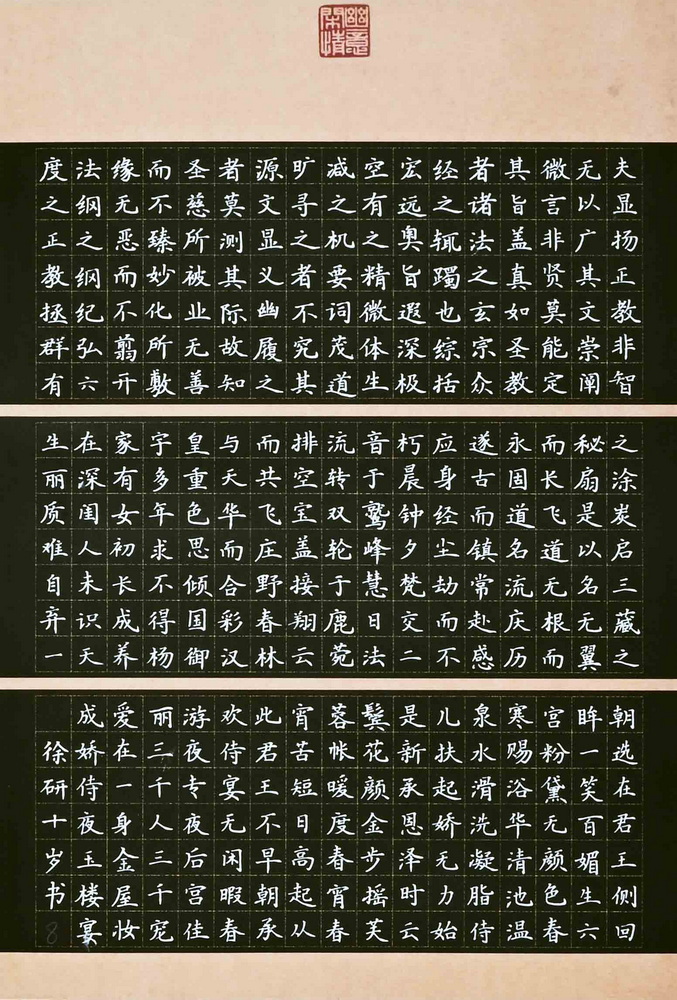 幽意
閑情
夫显扬正教非智
无以广其文崇阐
微言非贤莫能定
其旨盖真如圣教
者诸法之玄宗众
经之辄躅也综括
宏远奥旨遐深极
空有之精微体生
减之机要词茂道
旷寻之者不究其
源文显义幽履之
者莫测其际故知
圣慈所被业无善
而不臻妙化所敷
缘无恶而不翦开
法纲之纲纪弘六
度之正教拯群有
之涂炭启三藏之
秘扇是以名无翼
而长飞道无根而
永固道名流庆历
遂古而镇常赴感
应身经尘劫而不
朽晨钟夕梵交二
音于鹫峰慧日法
流转双轮于鹿菀
排空宝盖接翔云
而共飞庄野春林
与天华而合彩汉
皇重色思倾国御
字多年求不得杨
家有女初长成养
在深闺人未识天
生丽质难自弃一
朝选在君王侧回
眸一笑百媚生六
宫粉黛无颜色春
寒赐浴华清池温
泉水滑洗凝脂侍
儿扶起娇无力始
是新承恩泽时云
鬓花颜金步摇芙
蓉帐暖度春宵春
宵苦短日高起从
此君王不早朝承
欢侍宴无闲暇春
游夜专夜后宫佳
丽三千人三千宠
爱在一身金屋妆
成娇侍夜玉楼宴
徐研十岁书
8